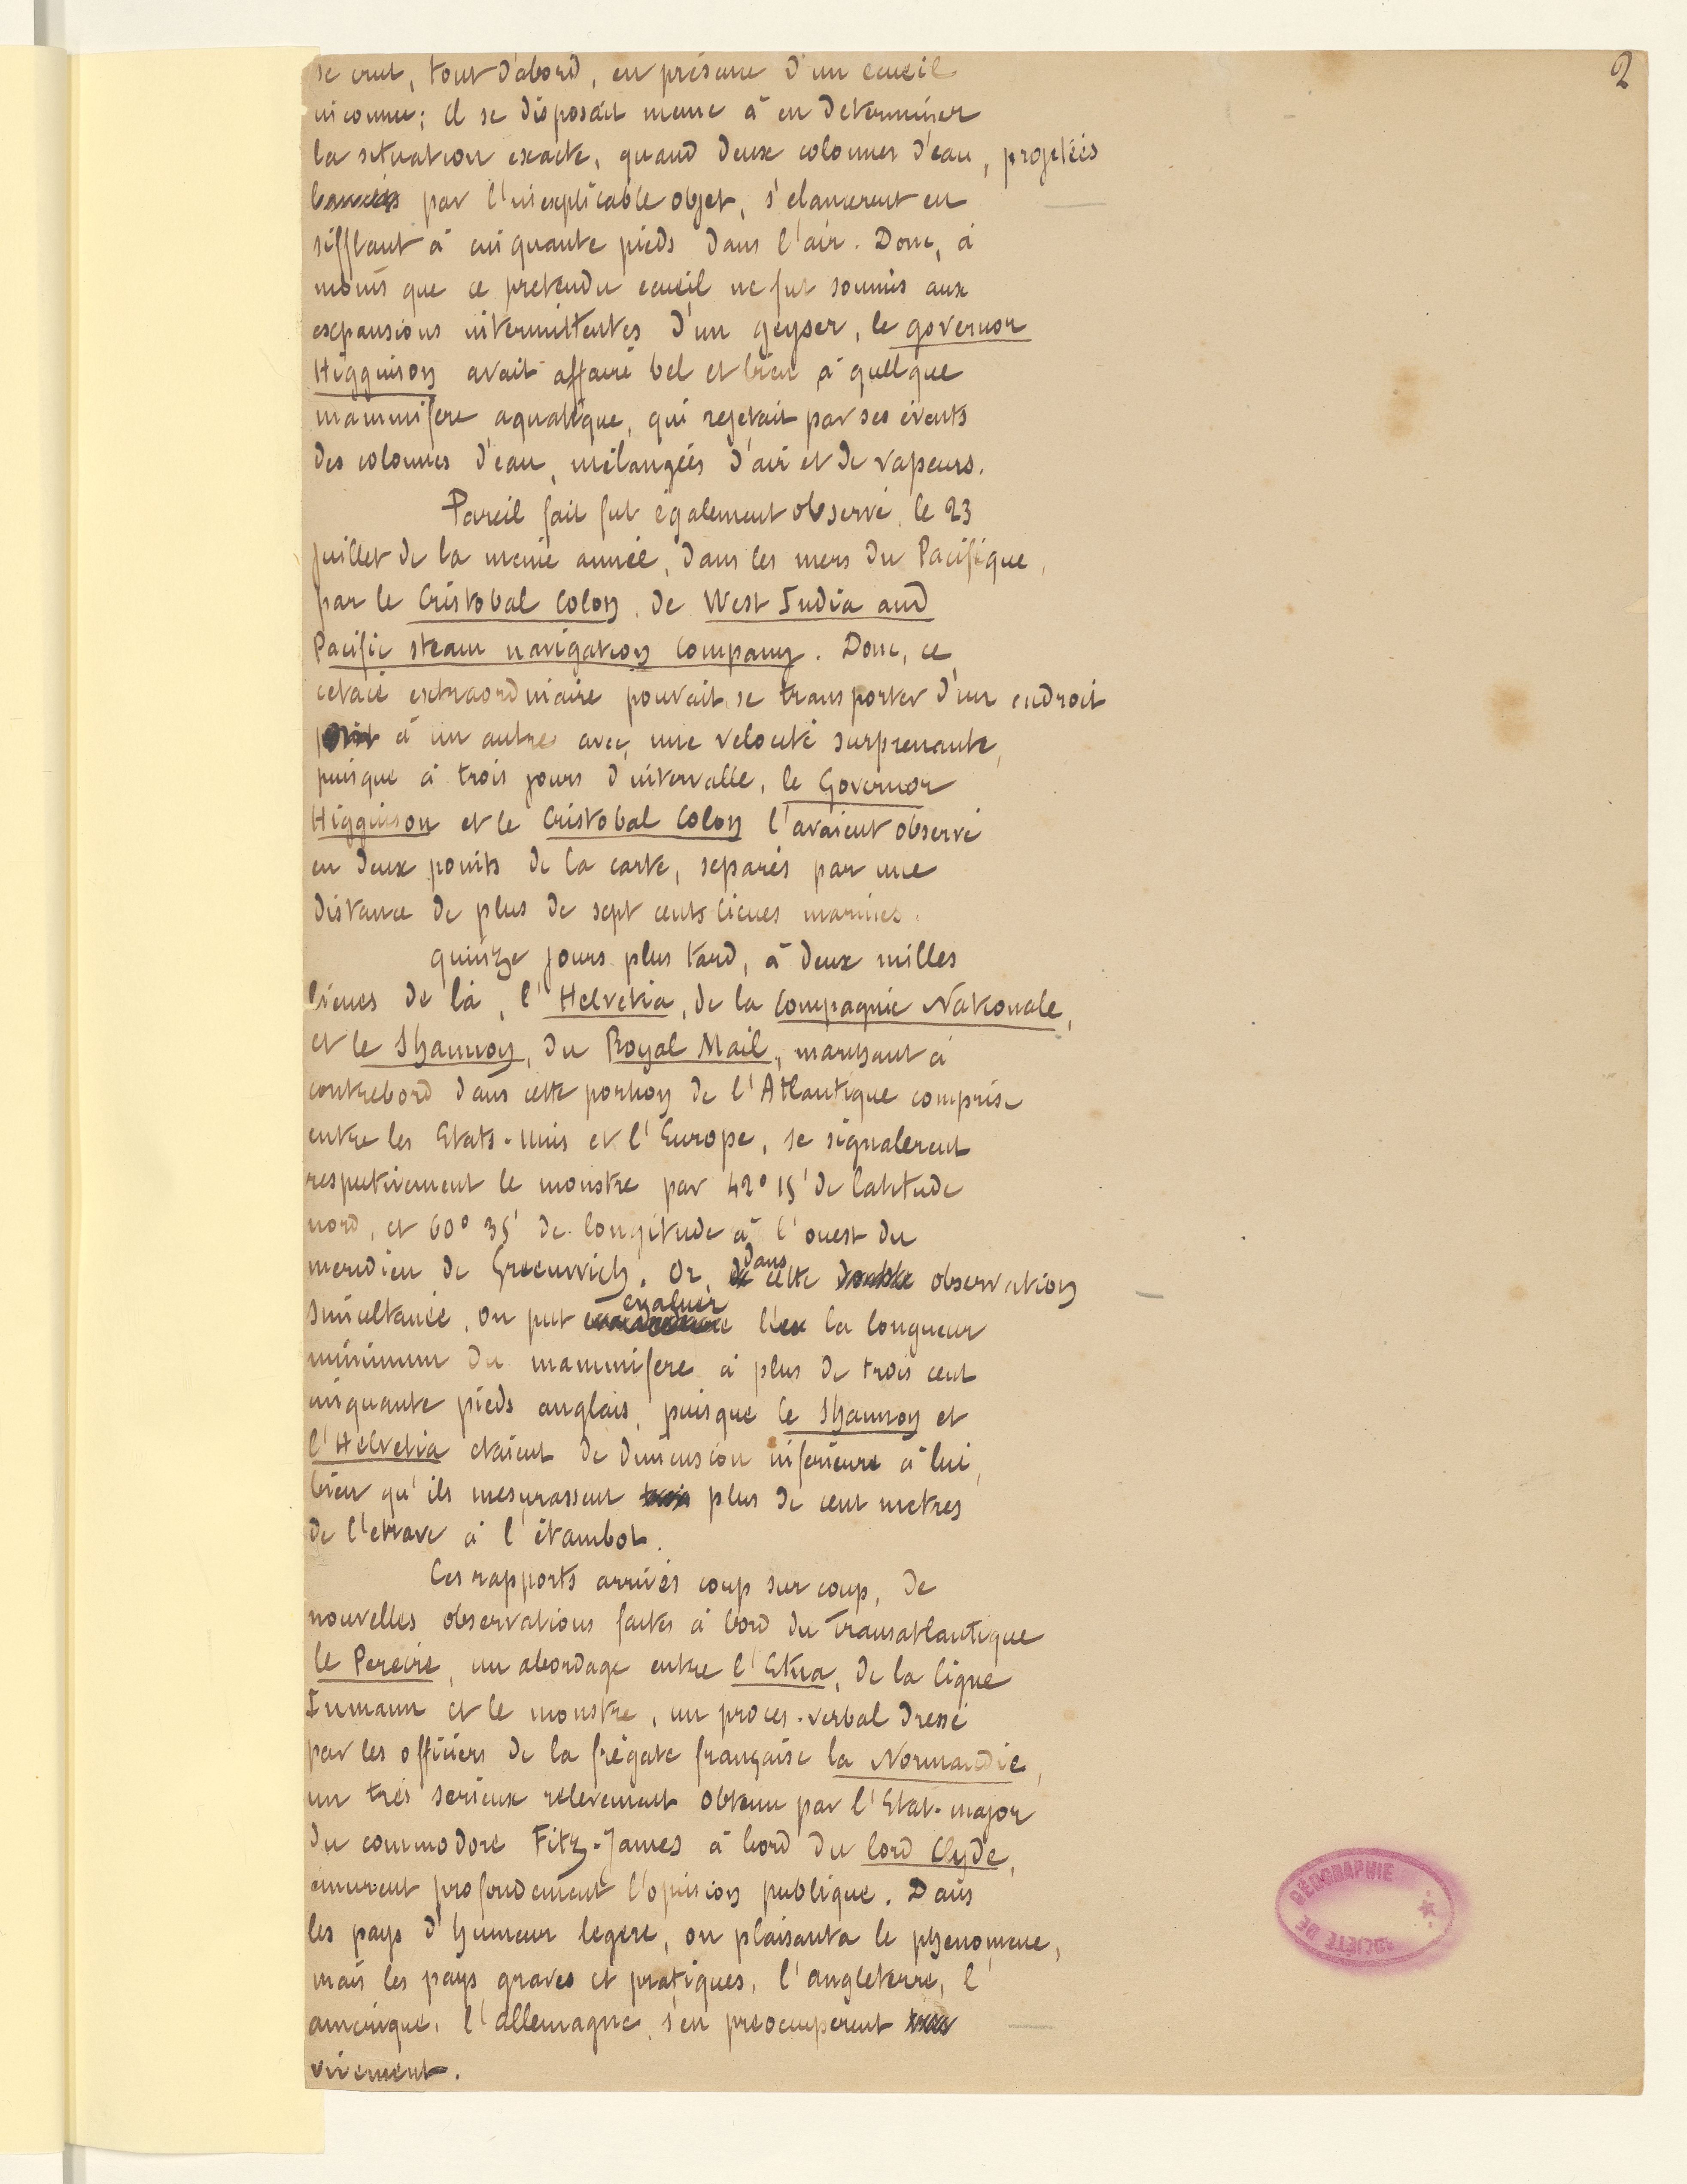 2
se crut, tout d'abord, en présence d'un ecueil
inconnu; il se disposait meme à en determiner
la situation exacte, quand deux colonnes d'eau, projetées
lancées par l'inexplicable objet, s'elancerent en
sifflant à cinquante pieds dans l'air. Donc, à
moins que ce pretendu ecueil ne fut soumis aux
expansions intermittentes d'un geyser, le governor
Higginson avait affaire bel et bien à quelque
mammifere aquatique, qui rejetait par ses évents
des colonnes d'eau, mélangées d'air et de vapeurs.
Pareil fait fut également observé, le 23
juillet de la meme année, dans les mers du Pacifique,
par le Cristobal Colon, de West India and
Pacific steam navigation company. Donc, ce
cetacé extraordinaire pouvait se transporter d'un endroit
point à un autre avec une velocité surprenante,
puisque à trois jours d'intervalle, le Governor
Higginson et le Cristobal Colon l'avaient observé
en deux points de la carte, separés par une
distance de plus de sept cents lieues marines.
quinze jours plus tard, à deux milles
lieues de là, l'Helvetia, de la Compagnie Nationale,
et le Shannon, du Royal Mail, marchant à
contrebord dans cette portion de l'Atlantique comprise
entre les Etats-Unis et l'Europe, se signalerent
respectivement le monstre par 42° 15' de latitude
nord, et 60° 35' de longitude à l'ouest du
meridien de Greenwich. Or, dans cette double observation
simultanée, on put evaluer la longueur
minimum du mammifere à plus de trois cent
cinquante pieds anglais, puisque le Shannon et
l'Helvetia etaient de dimension inferieure à lui,
bien qu'ils mesurassent plus de cent metres
de l'etrave à l'étambot.
Ces rapports arrivés coup sur coup, de
nouvelles observations faites à bord du Transatlantique
le Pereire, un abordage entre l'Etna, de la ligne
Inmann et le monstre, un proces-verbal dressé
par les officiers de la frégate française la Normandie,
un très serieux relevement obtenu par l'Etat-major
du commodore Fitz-James à bord du lord Clyde,
emurent profondement l'opinion publique. Dans
les pays d'humeur legere, on plaisanta le phenomene,
mais les pays graves et pratiques, l'angleterre, l'
amerique, l'allemagne, s'en preocuperent
vivement.
SOCIÉTÉ DE GÉOGRAPHIE